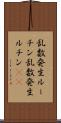 乱数発生ルー
チン乱数発生
ルチン